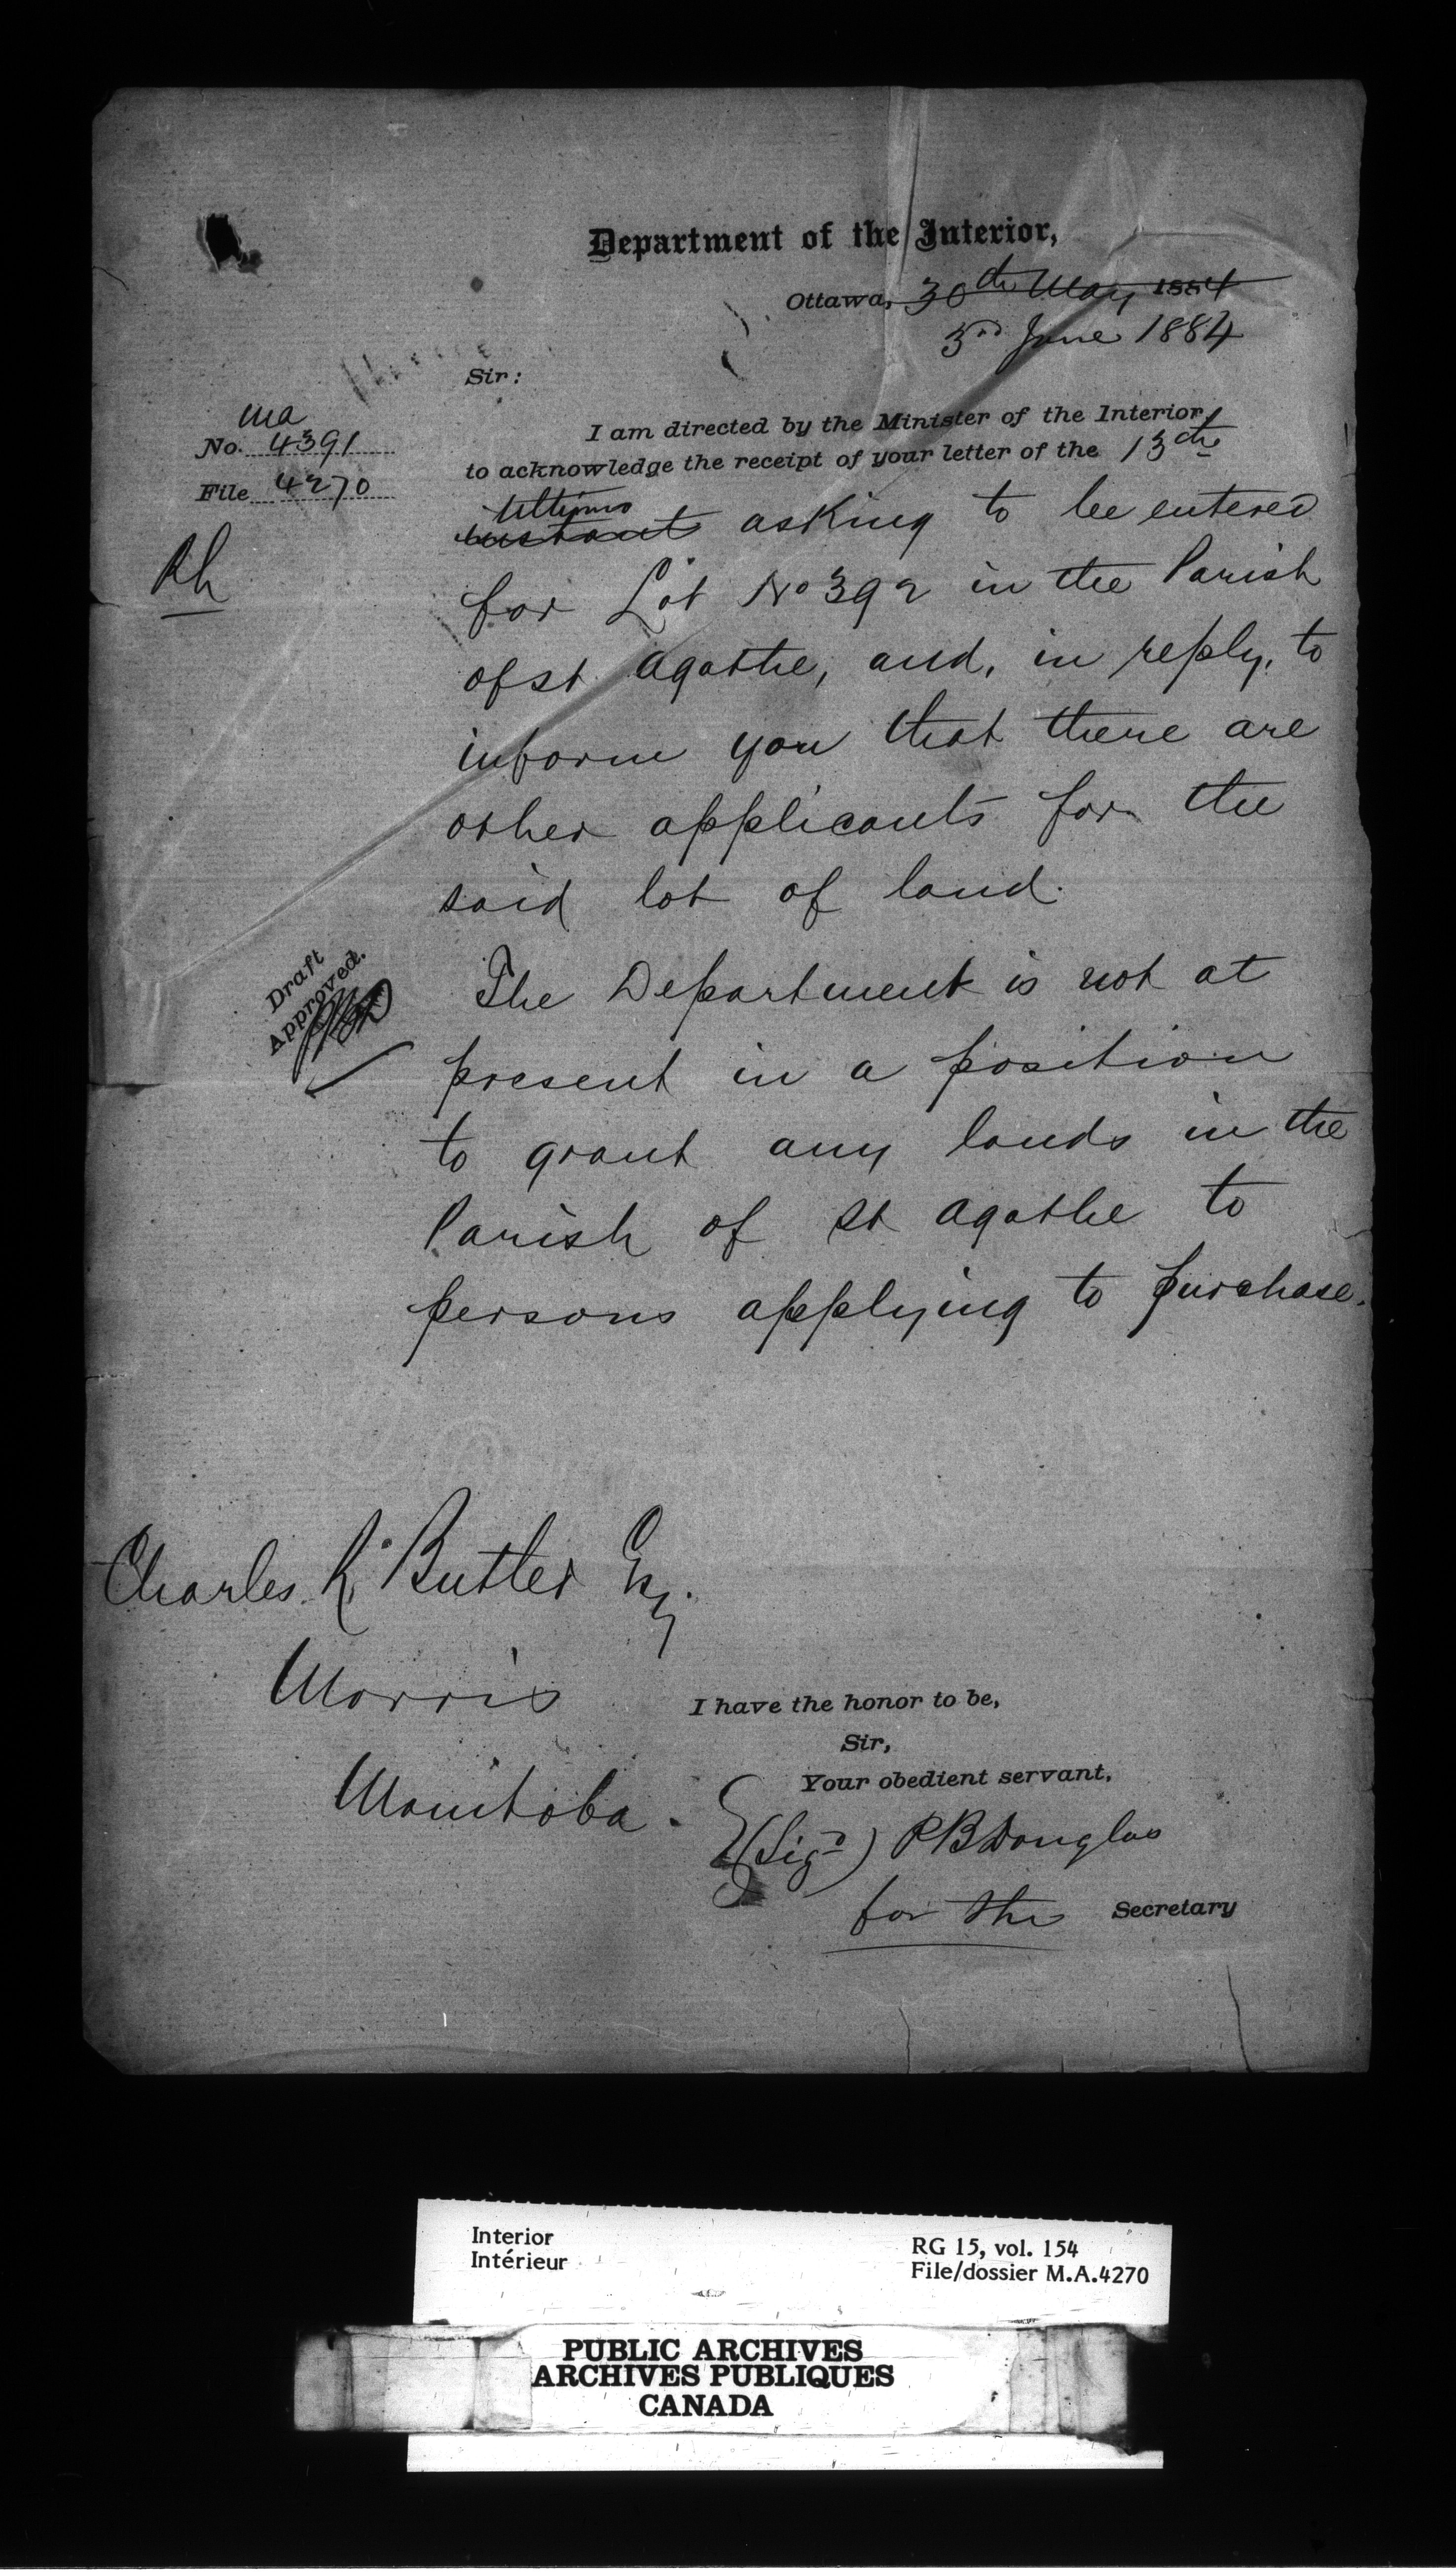 Department of the Interior,
Ottawa, 30th May 1884
3rd June 1884
Sir:
Ma
No. 4391
File 4270
Rh
I am directed by the Minister of the Interior,
to acknowledge the receipt of your letter of the 13th
Ultimo
instant asking to be entered
for Lot No 392 in the Parish
of St Agathe, and, in reply, to
inform you that there are
other applicants for the
said lot of land.
Draft
Approved.
The Department is not at
present in a position
to grant any lands in the
Parish of St Agathe to
persons applying to purchase.
Charles R. Butler Esq.
Morris
Manitoba.
I have the honor to be,
Sir,
Your obedient servant,
(Sigd) P B Douglas
for the Secretary
Interior
Intérieur
RG 15, vol. 154
File/dossier M.A.4270
PUBLIC ARCHIVES
ARCHIVES PUBLIQUES
CANADA